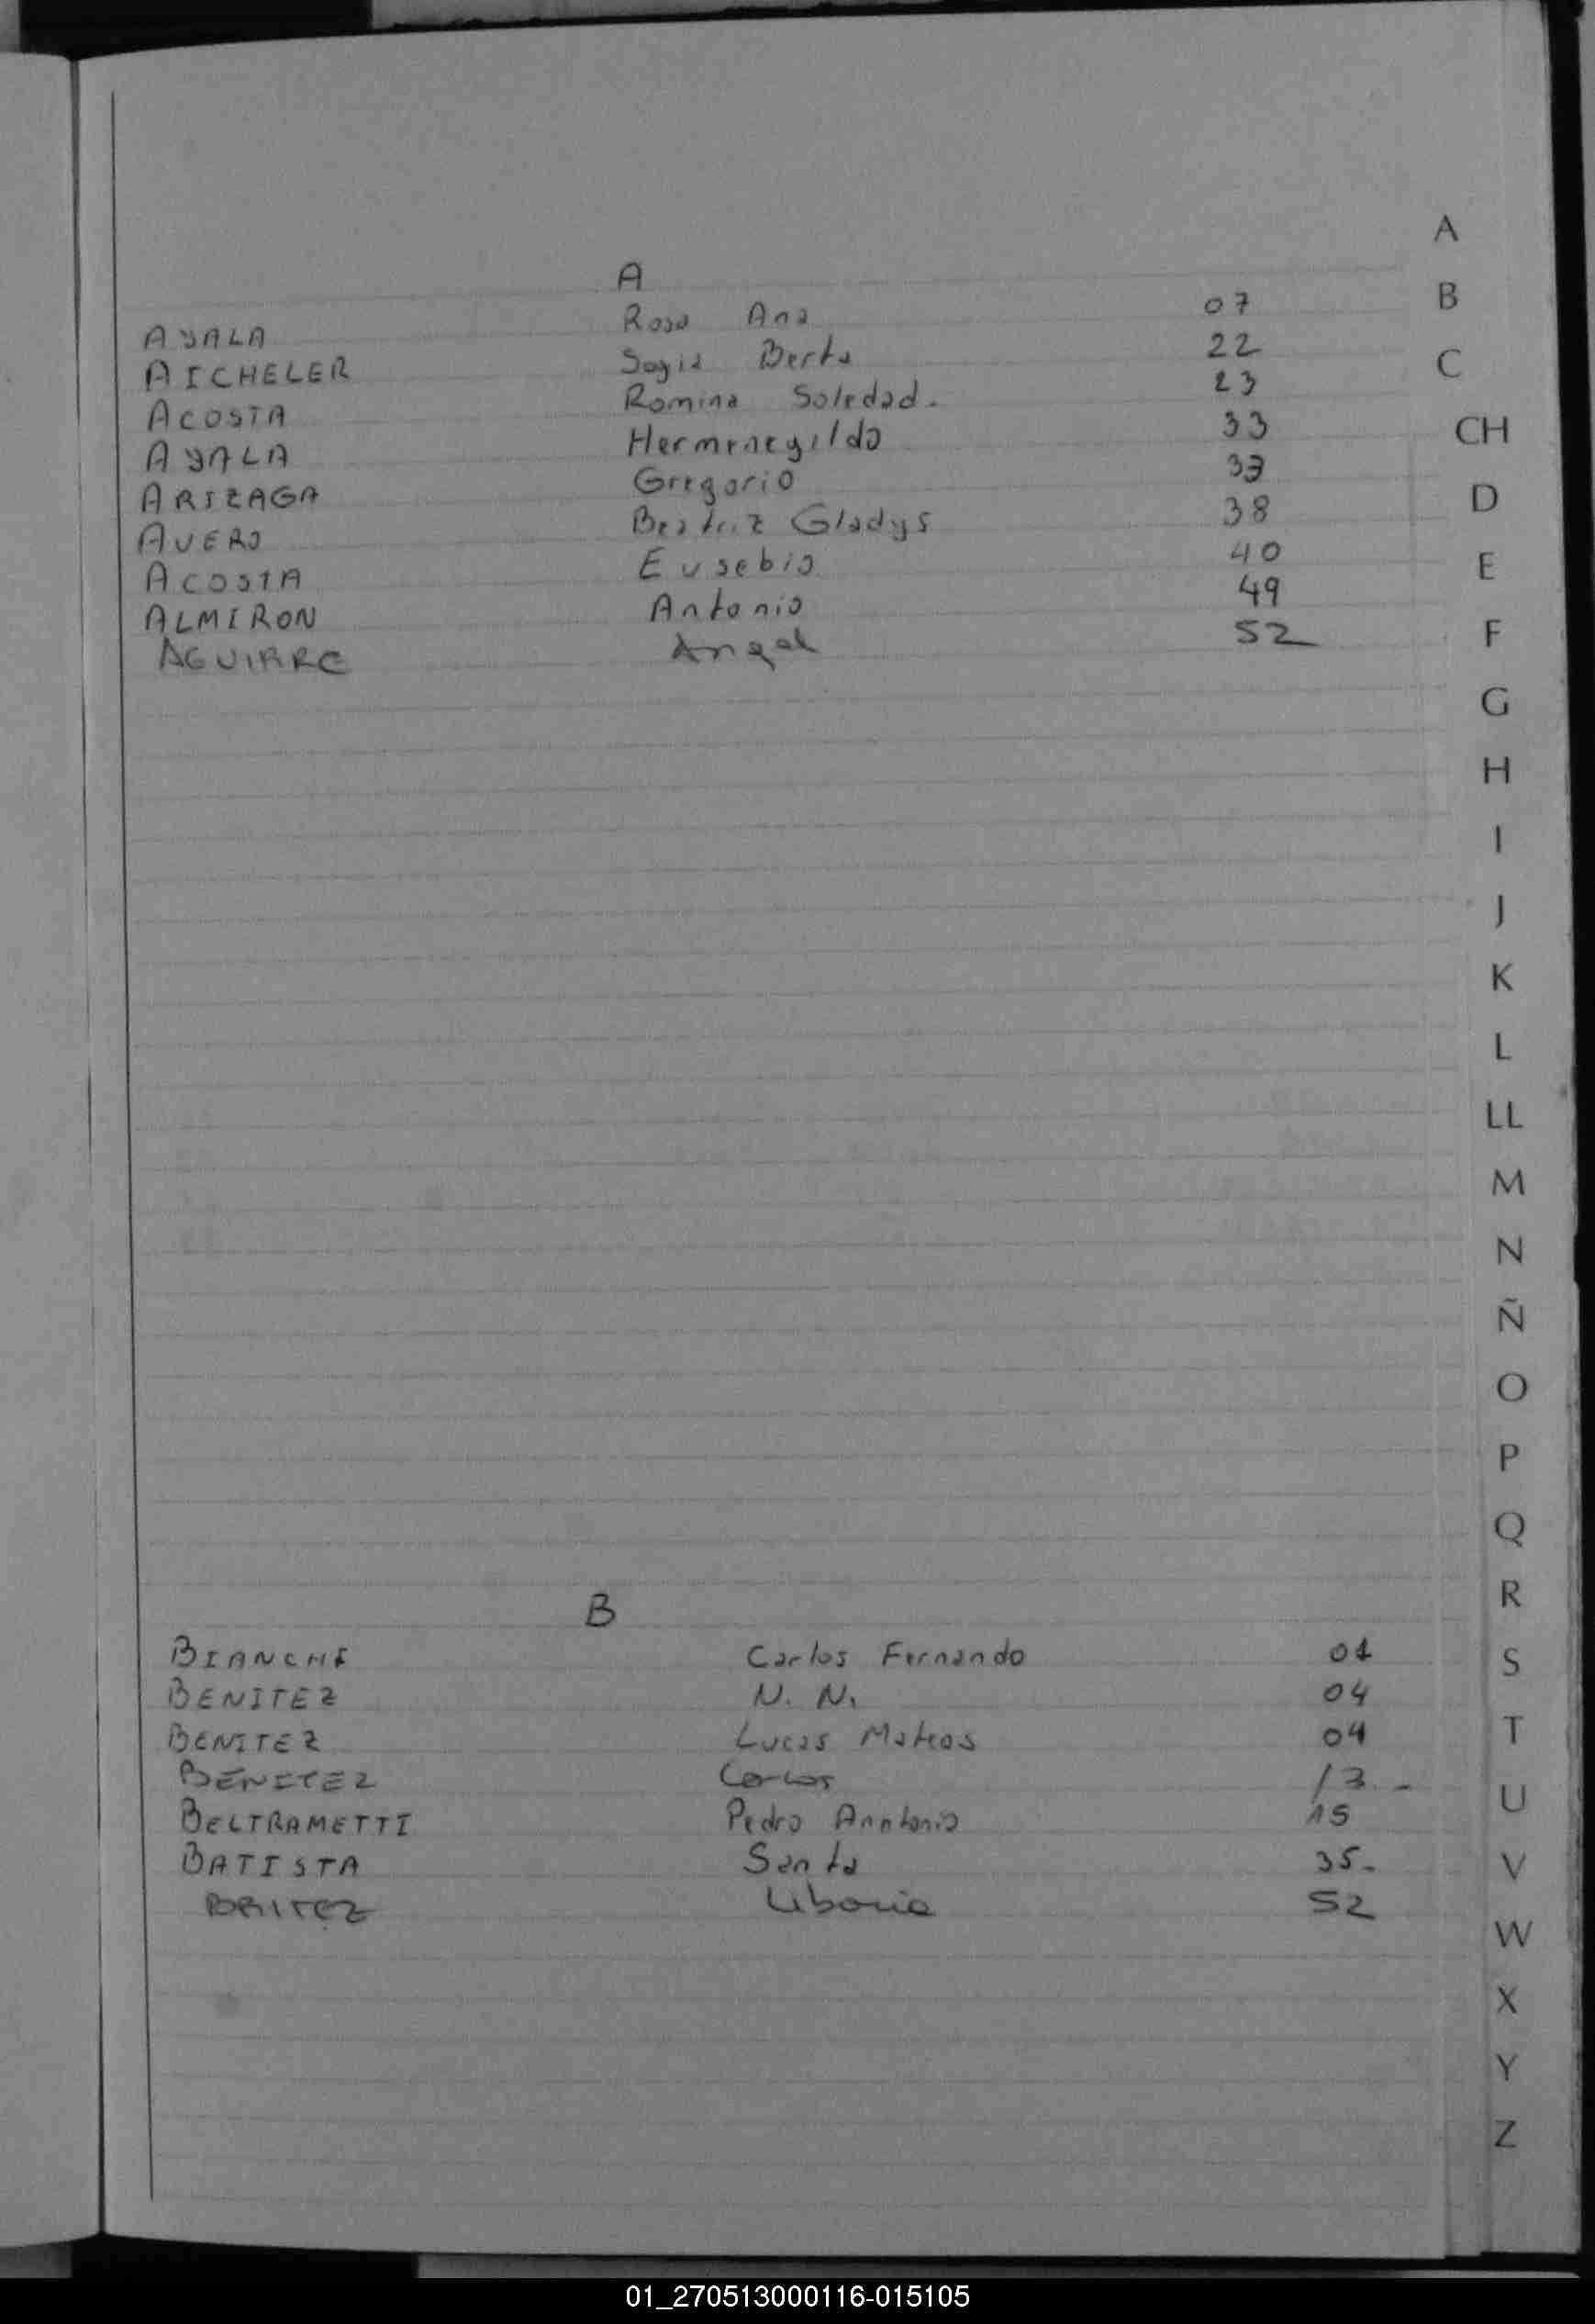 A
AYALA Rosa Ana 07
AICHELER Sogia Berta 22
ACOSTA Romina Soledad. 23
AYALA Hermenegildo 33
ARIZAGA Gregorio 33
AVERO Beatriz Gladys 38
ACOSTA Eusebio 40
ALMIRON Antonio 49
AGUIRRE Angel 52
B
BIANCHI Carlos Fernando 01
BENITEZ N. N. 04
BENITEZ Lucas Mateos 04
BENITEZ Carlos 13.-
BELTRAMETTI Pedro Anntonio 15
BATISTA Santa 35.
BRITEZ Liboria 52
A
B
C
CH
D
E
F
G
H
I
J
K
L
LL
M
N
Ñ
O
P
Q
R
S
T
U
V
W
X
Y
Z
01_270513000116-015105